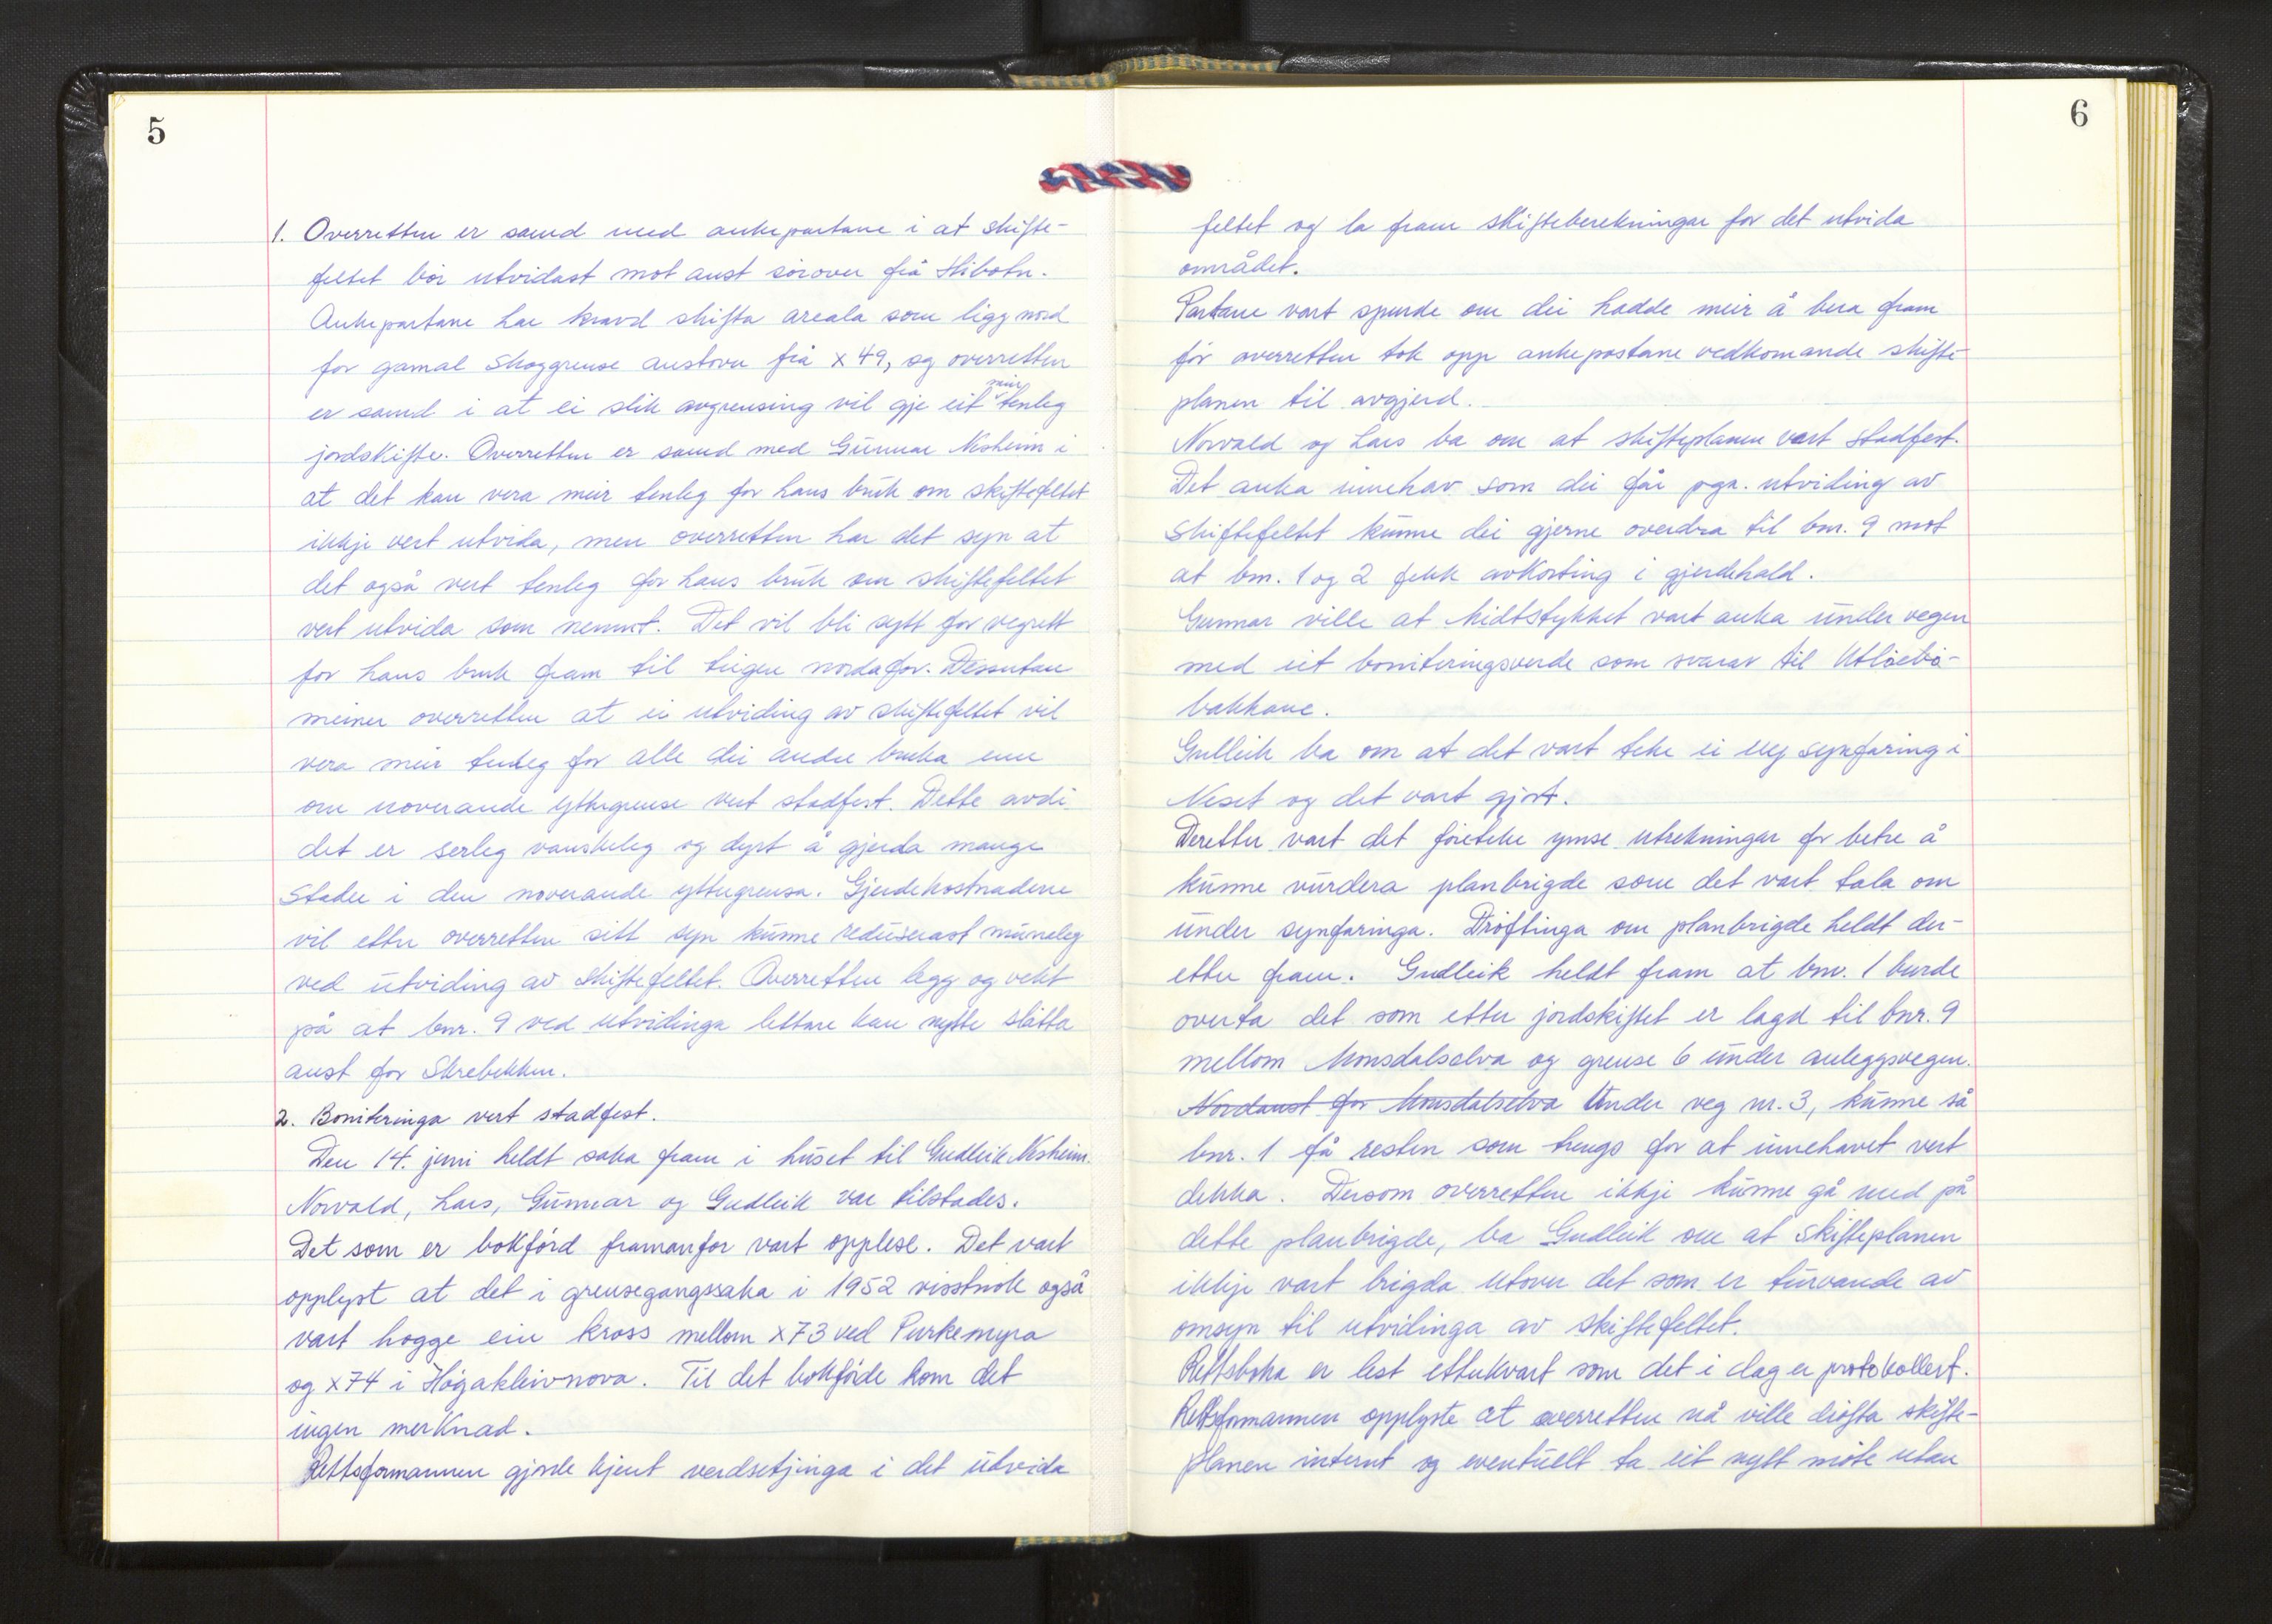 5
1. Overretten er samd med ankepartane i at skifte-
feltet bør utvidast mot aust sørover frå Stibotn.
Ankepartane har kravd skifta areala som ligg nord
for gamal skoggrense austover frå x 49, og overretten
er samd i at ei slik avgrensing vil gje eit meir tenleg
jordskifte. Overretten er samd med Gunnar Nesheim i
at det kan vera meir tenleg for hans bruk om skiftefeltet
ikkje vert utvida, men overretten har det syn at
det også vert tenleg for hans bruk om skiftefeltet
vert utvida som nemnt. Det vil bli sytt for vegrett
for hans bruk fram til teigen nordafor. Dessutan
meiner overretten at ei utviding av skiftefeltet vil
vera meir tenleg for alle dei andre bruka enn
om noverande yttergrense vert stadfest. Dette avdi
det er serleg vanskeleg og dyrt å gjerda mange
stader i den noverande yttergrensa. Gjerdekostnadene
vil etter overretten sitt syn kunne reduserast munaleg
ved utviding av skiftefeltet. Overretten legg og vekt
på at bnr. 9 ved utvidinga lettare kan nytte slåtta
aust for Skrebekken.
2. Boniteringa vert stadfest.
Den 14. juni heldt saka fram i huset til Gudleik Nesheim.
Norvald, Lars, Gunnar og Gudleik var tilstades.
Det som er bokførd framanfor vart opplese. Det vart
opplyst at det i grensegangssaka i 1952 visstnok også
vart hogge ein kross mellom x73 ved Purkemyra
og x74 i Høgakleivnova. Til det bokførde kom det
ingen merknad.
Rettsformannen gjorde kjent verdsetjinga i det utvida
6
feltet og la fram skifteberekningar for det utvida
området.
Partane vart spurde om dei hadde meir å bera fram
før overretten tok opp ankepostane vedkomande skifte-
planen til avgjerd.
Norvald og Lars ba om at skifteplanen vart stadfest.
Det auka innehav som dei får pga. utviding av
skiftefeltet kunne dei gjerne overdra til bnr. 9 mot
at bnr. 1 og 2 fekk avkorting i gjerdehald.
Gunnar ville at Midtstykket vart auka under vegen
med eit boniteringsverde som svarar til Utløebø-
bakkane.
Gulleik ba om at det vart teke ei ny synfaring i
Neset og det vart gjort.
Deretter vart det føreteke ymse utrekningar for betre å
kunne vurdera planbrigde som det vart tala om
under synfaringa. Drøftinga om planbrigde heldt der-
etter fram. Gudleik heldt fram at bnr. 1 burde
overta det som etter jordskiftet er lagd til bnr. 9
mellom Monsdalselva og grense 6 under anleggsvegen.
Nordaust for Monsdalselva Under veg nr. 3, kunne så
bnr. 1 få resten som trengs for at innehavet vert
dekka. Dersom overretten ikkje kunne gå med på
dette planbrigde, ba Gudleik om at skifteplanen
ikkje vart brigda utover det som er turvande av
omsyn til utvidinga av skiftefeltet.
Rettsboka er lest etterkvart som det i dag er protokollert.
Rettsformannen opplyste at overretten nå ville drøfta skifte-
planen internt og eventuelt ta eit nytt møte utan